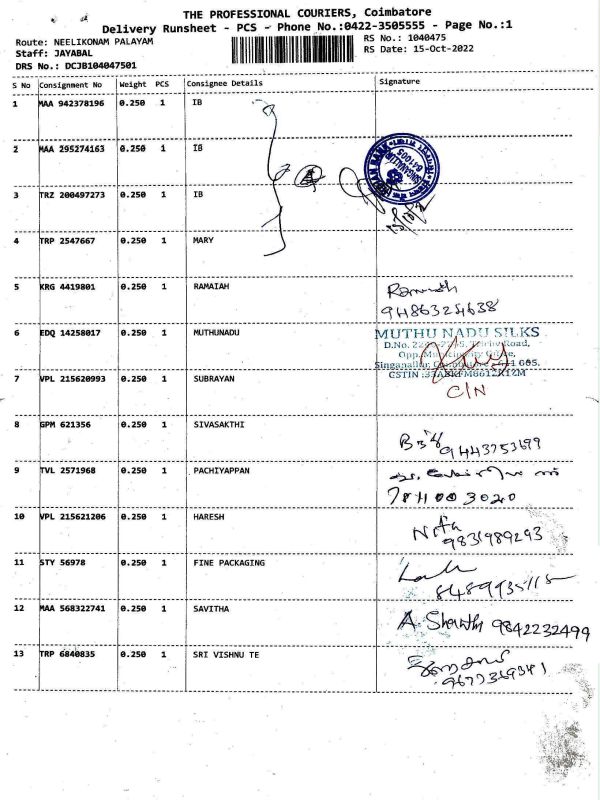 THE PROFESSIONAL COURIERS, Coimbatore
Delivery Runsheet - PCS - Phone No.:0422-3505555 - Page No.:1
Route: NEELIKONAM PALAYAM
RS No.: 1040475
Staff: JAYABAL
RS Date: 15-Oct-2022
DRS No.: DCJB104047501
S No Consignment No Weight PCS Consignee Details Signature
1 MAA 942378196 0.250 1 IB
2 MAA 295274163 0.250 1 IB
3 TRZ 200497273 0.250 1 IB
4 TRP 2547667 0.250 1 MARY
5 KRG 4419801 0.250 1 RAMAIAH
9486325638
6 EDQ 14258017 0.250 1 MUTHUNADU MUTHU NADU SILKS
7 VPL 215620993 0.250 1 SUBRAYAN
C/N
8 GPM 621356 0.250 1 SIVASAKTHI
9443753699
9 TVL 2571968 0.250 1 PACHIYAPPAN
10 VPL 215621206 0.250 1 HARESH
9831989293
11 STY 56978 0.250 1 FINE PACKAGING
12 MAA 568322741 0.250 1 SAVITHA
9842232499
13 TRP 6840835 0.250 1 SRI VISHNU TE